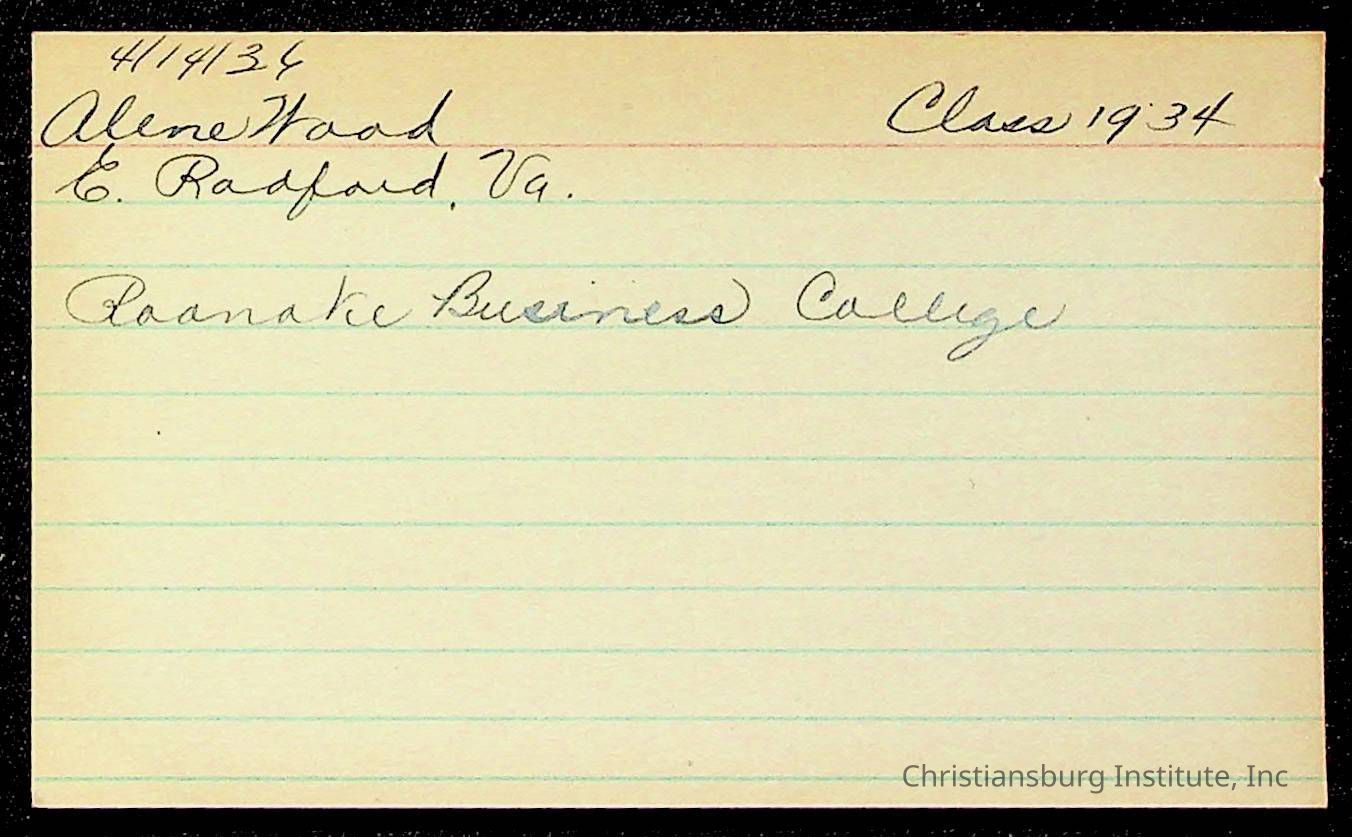 4/14/36
Alene Wood Class 1934
E. Radford, Va.
Roanoke Business College
Christiansburg Institute, Inc